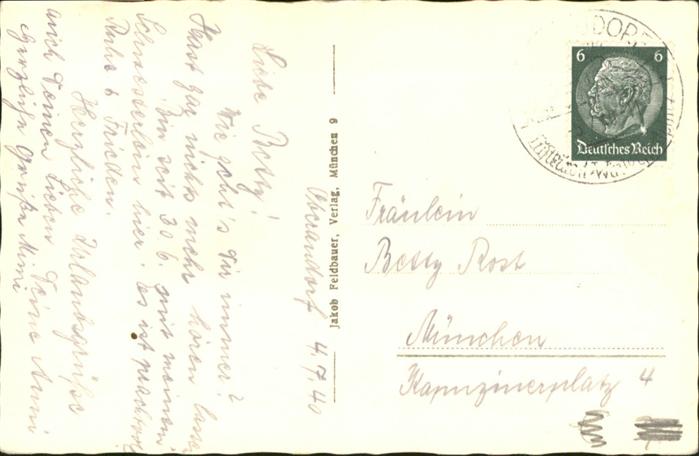 Oberaudorf 4.7.40
Liebe Betty!
Wie geht's Dir immer?
Hast gar nichts mehr hören lassen.
Bin seit 30.6. mit meinem
Schwesterlein hier. Es ist
Ruhe & Frieden.
Herzliche Urlaubsgrüße
auch Deinen Lieben Deine Anni
Herzliche Grüße Mimi
Jakob Feldbauer, Verlag, München 9
6 6
Deutsches Reich
Fräulein
Betty Rost
München
Kapuzinerplatz 4